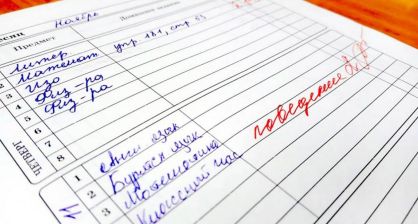 Ноябрь
Предмет
Домашнее задание
1 Литер
2 Математ упр 181, стр 63
3 Изо
4 Физ-ра
5 Физ-ра
6
7
8
ЧЕТВЕРГ
поведение
1 Англ язык
2 Бурятск язык
3 Математика
Классный час
11